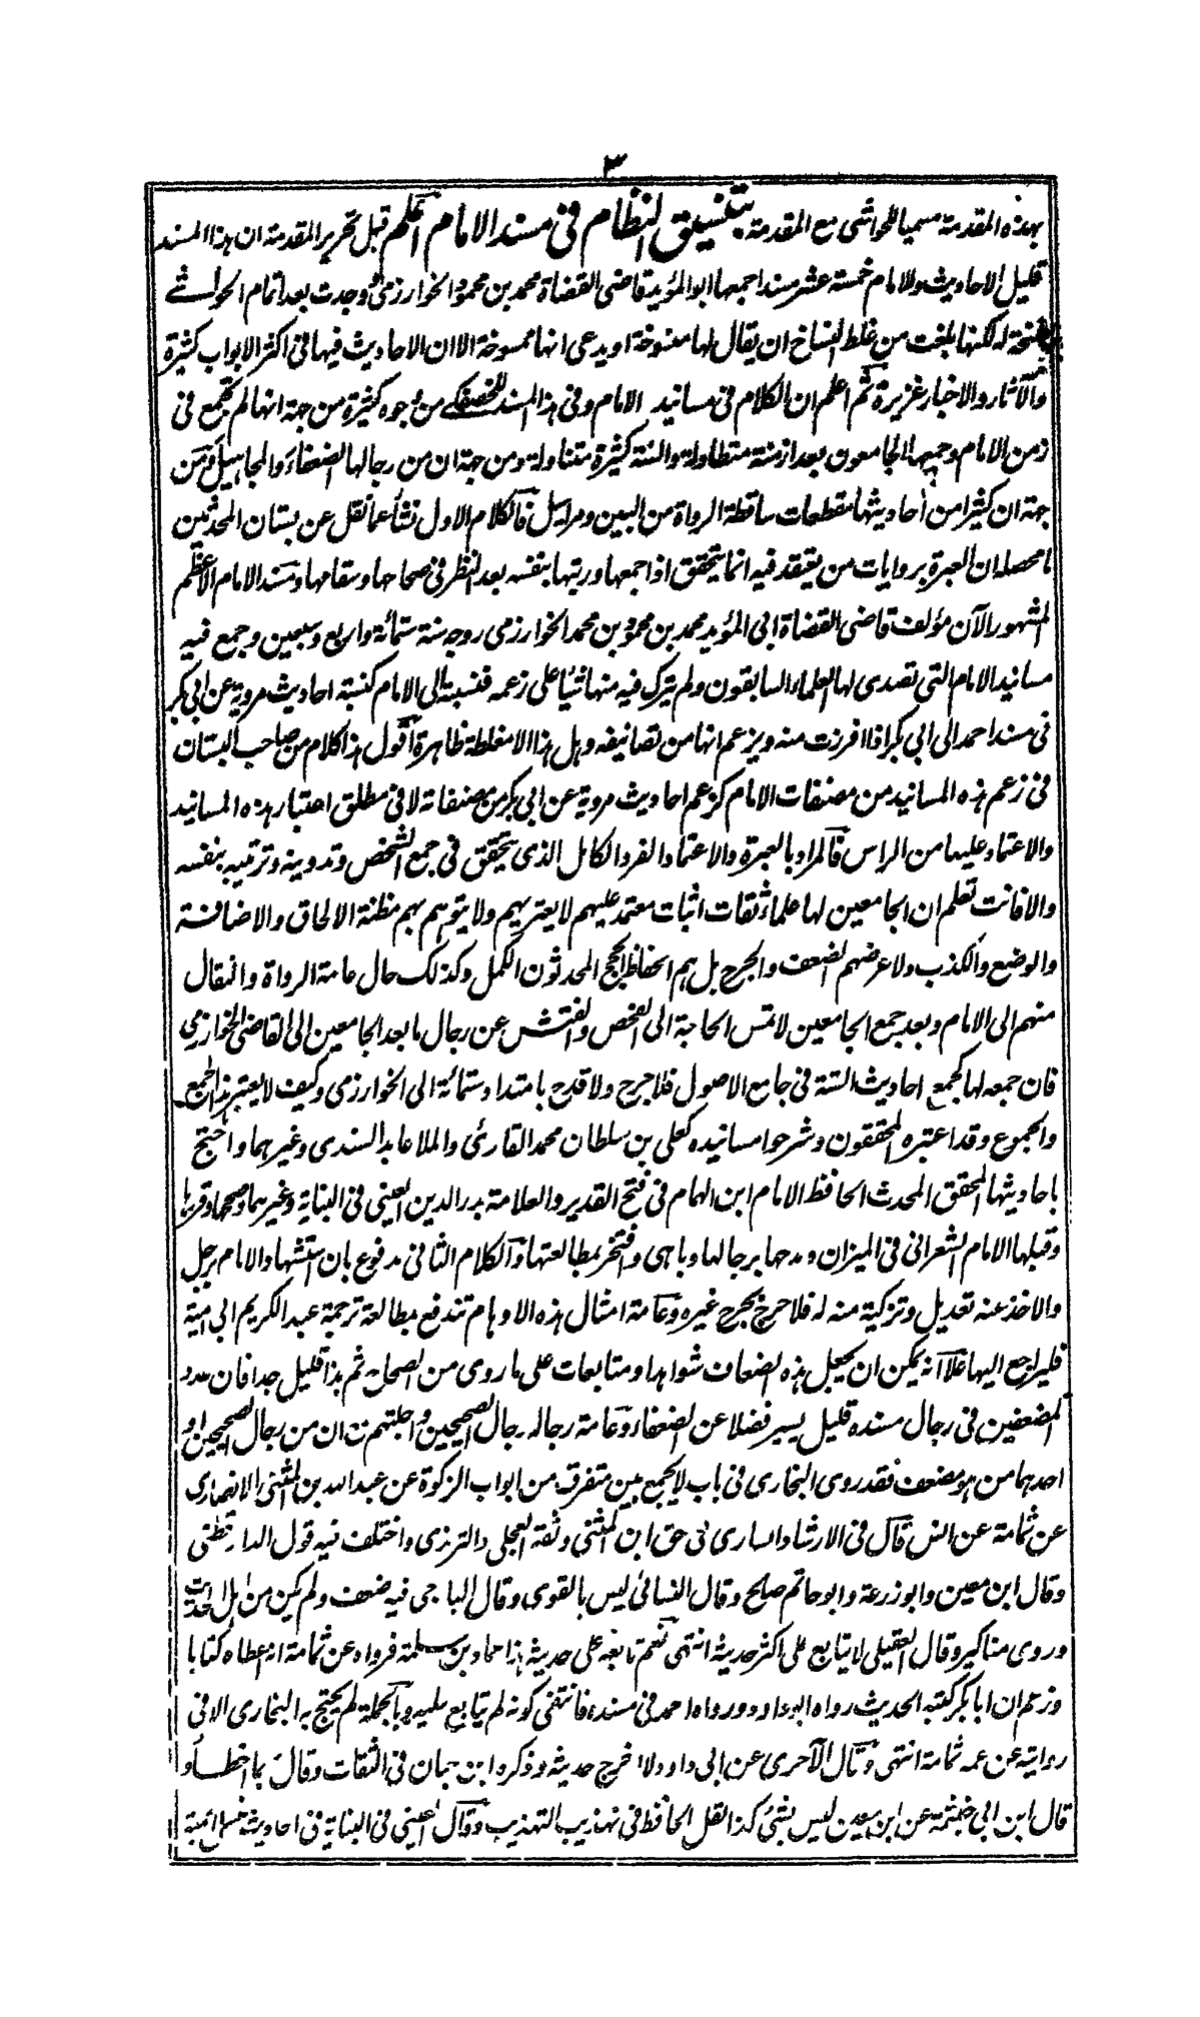 ٣
بهذه المقدمة مسميا للحواشى مع المقدمة بتنسيق النظام فى مسند الامام اعلم قبل تحرير المقدمة ان هذا المسند
قليل الاحاديث وللامام خمسة عشر مسندا جمعها ابو المؤيد قاضى القضاة محمد بن محمود الخوارزمى وجدت بعد اتمام الحواشے
نسخة له لكنها بلغت من غلط النساخ ان يقال لها منسوخة او يدعى انها ممسوخة الا ان الاحاديث فيها فى اكثر الابواب كثيرة
والآثار والاخبار غزيرة ثم اعلم ان الكلام فى مسانيد الامام وفى هذا المسند للحصفكے من وجوه كثيرة من جهة انها لم تجمع فى
زمن الامام وجمعها الجامعون بعد ازمنة متطاولة والسنة كثيرة متناولة ومن جهة ان من رجالها الضعفاء والمجاهيل ومن
جهة ان كثيرا من احاديثها مقطعات ساقطة الرواة من البين ومراسيل فالكلام الاول نشأ عما نقل عن بستان المحدثين
ما محصله ان العبرة بروايات من يعتقد فيه انما يتحقق اذا جمعها ورتبها بنفسه بعد النظر فى صحاحها وسقامها ومسند الامام الاعظم
المشهور الآن مؤلف قاضى القضاة ابى المؤيد محمد بن محمود بن محمد الخوارزمى روجه سنة ستمائة واربع وسبعين وجمع فيه
مسانيد الامام التى تصدى لها العلماء السابقون ولم يترك فيه منها شيئا على زعمه فنسبته الى الامام كنسبة احاديث مروية عن ابى بكر
فى مسند احمد الى ابى بكر اذا افرزت منه ويزعم انها من تصانيفه وهل هذا الا مغلطة ظاهرة اقول هذا كلام من صاحب البستان
فى زعم هذه المسانيد من مصنفات الامام كزعم احاديث مروية عن ابى بكر من مصنفاته لا فى مطلق اعتبار هذه المسانيد
والاعتماد عليها من الراس فالمراد بالعبرة والاعتماد الفرد الكامل الذى يتحقق فى جمع الشخص وتدوينه وترتيبه بنفسه
والا فانت تعلم ان الجامعين لها علماء ثقات اثبات معتمد عليهم لا يعتريهم ولا يتوهم بهم مظنة الالحاق والاضافة
والوضع والكذب ولا عرضهم الضعف والجرح بل هم الحفاظ الحجج المحدثون الكمل وكذلك حال عامة الرواة وانتقال
منهم الى الامام وبعد جمع الجامعين لا تمس الحاجة الى الفحص والفتش عن رجال ما بعد الجامعين الى القاضى الخوارزمى
فان جمعه لها كجمع احاديث الستة فى جامع الاصول فلا جرح ولا قدح بامتداد ستمائة الى الخوارزمى وكيف لا يعتبر هذا الجمع
والمجموع وقد اعتبره المحققون وشرحوا مسانيده كعلى بن سلطان محمد القارئ والملا عابد السندى وغيرهما واحتج
باحاديثها المحقق المحدث الحافظ الامام ابن الهمام فى فتح القدير والعلامة بدر الدين العينى فى البناية وغيرهما وصححها وقرر بها
وقبلها الامام الشعرانى فى الميزان ومدحها برجالها وباهى وافتخر بمطالعتها والكلام الثانى مدفوع بان استشهاد الامام برجل
والاخذ عنه تعديل وتزكية منه له فلا حرج بجرح غيره وعامة امثال هذه الاوهام تندفع بمطالعة ترجمة عبد الكريم ابى امية
فليراجع اليها علا انه يمكن ان يجعل هذه الضعاف شواهد او متابعات على ما روى من الصحاح ثم هذا قليل جدا فان عدد
المضعفين فى رجال مسنده قليل يسير فضلا عن الضعفاء وعامة رجاله رجال الصحيحين واجلتهم ان من رجال الصحيحين او
احدهما من هو مضعف فقد روى البخارى فى باب لا يجمع بين متفرق من ابواب الزكوة عن عبد الله بن المثنى الانصارى
عن ثمامة عن انس قال فى الارشاد السارى فى حق ابن المثنى وثقه العجلى والترمذى واختلف فيه قول الدارقطنى
وقال ابن معين وابو زرعة وابو حاتم صالح وقال النسائى ليس بالقوى وقال الباجى فيه ضعف ولم يكن من اهل الحديث
وروى مناكير وقال العقيلى لا يتابع على اكثر حديثه انتهى نعم تابعه على حديثه هذا حماد بن سلمة فرواه عن ثمامة انه اعطاه كتابا
وزعم ان ابا بكر كتبه الحديث رواه ابو داود ورواه احمد فى مسنده فانتفى كونه لم يتابع عليه وبالجملة لم يحتج به البخارى الا فى
روايته عن عمه ثمامة انتهى وقال الآجرى عن ابى داود لا اخرج حديثه وذكره ابن حبان فى الثقات وقال ربما اخطأ و
قال ابن ابى خيثمة عن ابن معين ليس بشئ كذا نقل الحافظ فى تهذيب التهذيب وقال العينى فى البناية فى احاديثه